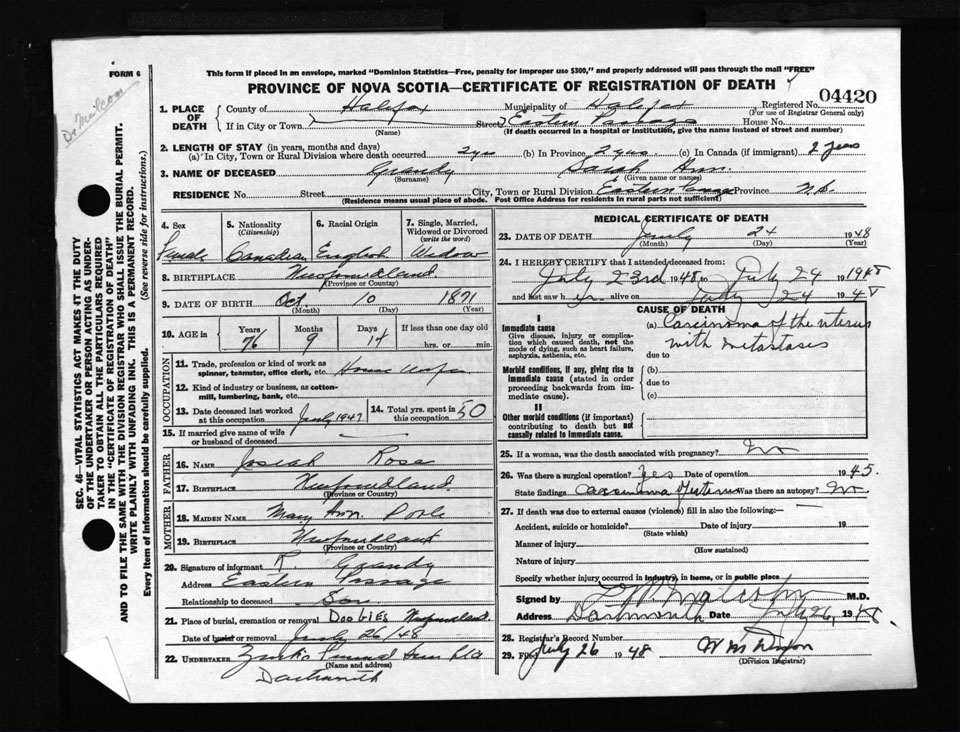 FORM 6
This form if placed in an envelope, marked "Dominion Statistics—Free, penalty for improper use $300," and properly addressed will pass through the mail "FREE"
PROVINCE OF NOVA SCOTIA—CERTIFICATE OF REGISTRATION OF DEATH
Dr Malcom
SEC. 46—VITAL STATISTICS ACT MAKES IT THE DUTY
OF THE UNDERTAKER OR PERSON ACTING AS UNDER-
TAKER TO OBTAIN ALL THE PARTICULARS REQUIRED
IN THE "CERTIFICATE OF REGISTRATION OF DEATH"
AND TO FILE THE SAME WITH THE DIVISION REGISTRAR WHO SHALL ISSUE THE BURIAL PERMIT.
WRITE PLAINLY WITH UNFADING INK. THIS IS A PERMANENT RECORD.
Every item of information should be carefully supplied. (See reverse side for instructions.)
1. PLACE OF DEATH
County of Halifax Municipality of Halifax Registered No. 04420
(For use of Registrar General only)
If in City or Town Street Eastern Passage House No.
(Name) (If death occurred in a hospital or institution, give the name instead of street and number)
2. LENGTH OF STAY (in years, months and days)
(a) In City, Town or Rural Division where death occurred 2 yrs (b) In Province 2 yrs (c) In Canada (if immigrant) 2 years
3. NAME OF DECEASED Grandy Sarah Ann.
(Surname) (Given name or names)
RESIDENCE No. Street City, Town or Rural Division Eastern Passage Province N.S.
(Residence means usual place of abode. Post Office Address for residents in rural parts not sufficient)
4. Sex
Female
5. Nationality
(Citizenship)
Canadian
6. Racial Origin
English
7. Single, Married,
Widowed or Divorced
(write the word)
Widow
8. BIRTHPLACE Newfoundland
(Province or Country)
9. DATE OF BIRTH Oct. 10 1871
(Month) (Day) (Year)
10. AGE in Years Months Days If less than one day old
76 9 14 hrs. or min.
OCCUPATION
11. Trade, profession or kind of work as
spinner, teamster, office clerk, etc. House Wife
12. Kind of industry or business, as cotton-
mill, lumbering, bank, etc.
13. Date deceased last worked
at this occupation July 1947
14. Total yrs. spent in
this occupation 50
15. If married give name of wife
or husband of deceased
FATHER
16. NAME Josiah Rose
17. BIRTHPLACE Newfoundland.
(Province or Country)
MOTHER
18. MAIDEN NAME Mary Ann. Poole
19. BIRTHPLACE Newfoundland
(Province or Country)
20. Signature of informant R. Grandy
Address Eastern Passage
Relationship to deceased Son
21. Place of burial, cremation or removal DooGIES Newfoundland.
Date of burial or removal July 26/48
22. UNDERTAKER Funeral Home Ltd
(Name and address)
Dartmouth
MEDICAL CERTIFICATE OF DEATH
23. DATE OF DEATH July 24 1948
(Month) (Day) (Year)
24. I HEREBY CERTIFY that I attended deceased from:
July 23rd 1948 to July 24 1948
and last saw h er alive on July 24 1948
CAUSE OF DEATH
I
Immediate cause
Give disease, injury or complica-
tion which caused death, not the
mode of dying, such as heart failure,
asphyxia, asthenia, etc.
(a) Carcinoma of the uterus
with metastases
due to
Morbid conditions, if any, giving rise to
immediate cause (stated in order
proceeding backwards from im-
mediate cause).
(b)
due to
(c)
II
Other morbid conditions (if important)
contributing to death but not
causally related to immediate cause.
25. If a woman, was the death associated with pregnancy? No
26. Was there a surgical operation? Yes Date of operation 1945.
State findings Carcinoma Uterus Was there an autopsy? No
27. If death was due to external causes (violence) fill in also the following:—
Accident, suicide or homicide? Date of injury 19
(State which)
Manner of injury
(How sustained)
Nature of injury
Specify whether injury occurred in industry, in home, or in public place
Signed by Malcolm M.D.
Address Dartmouth Date July 26, 1948.
28. Registrar's Record Number
29. Filed July 26 1948 W M Dixon
(Division Registrar)